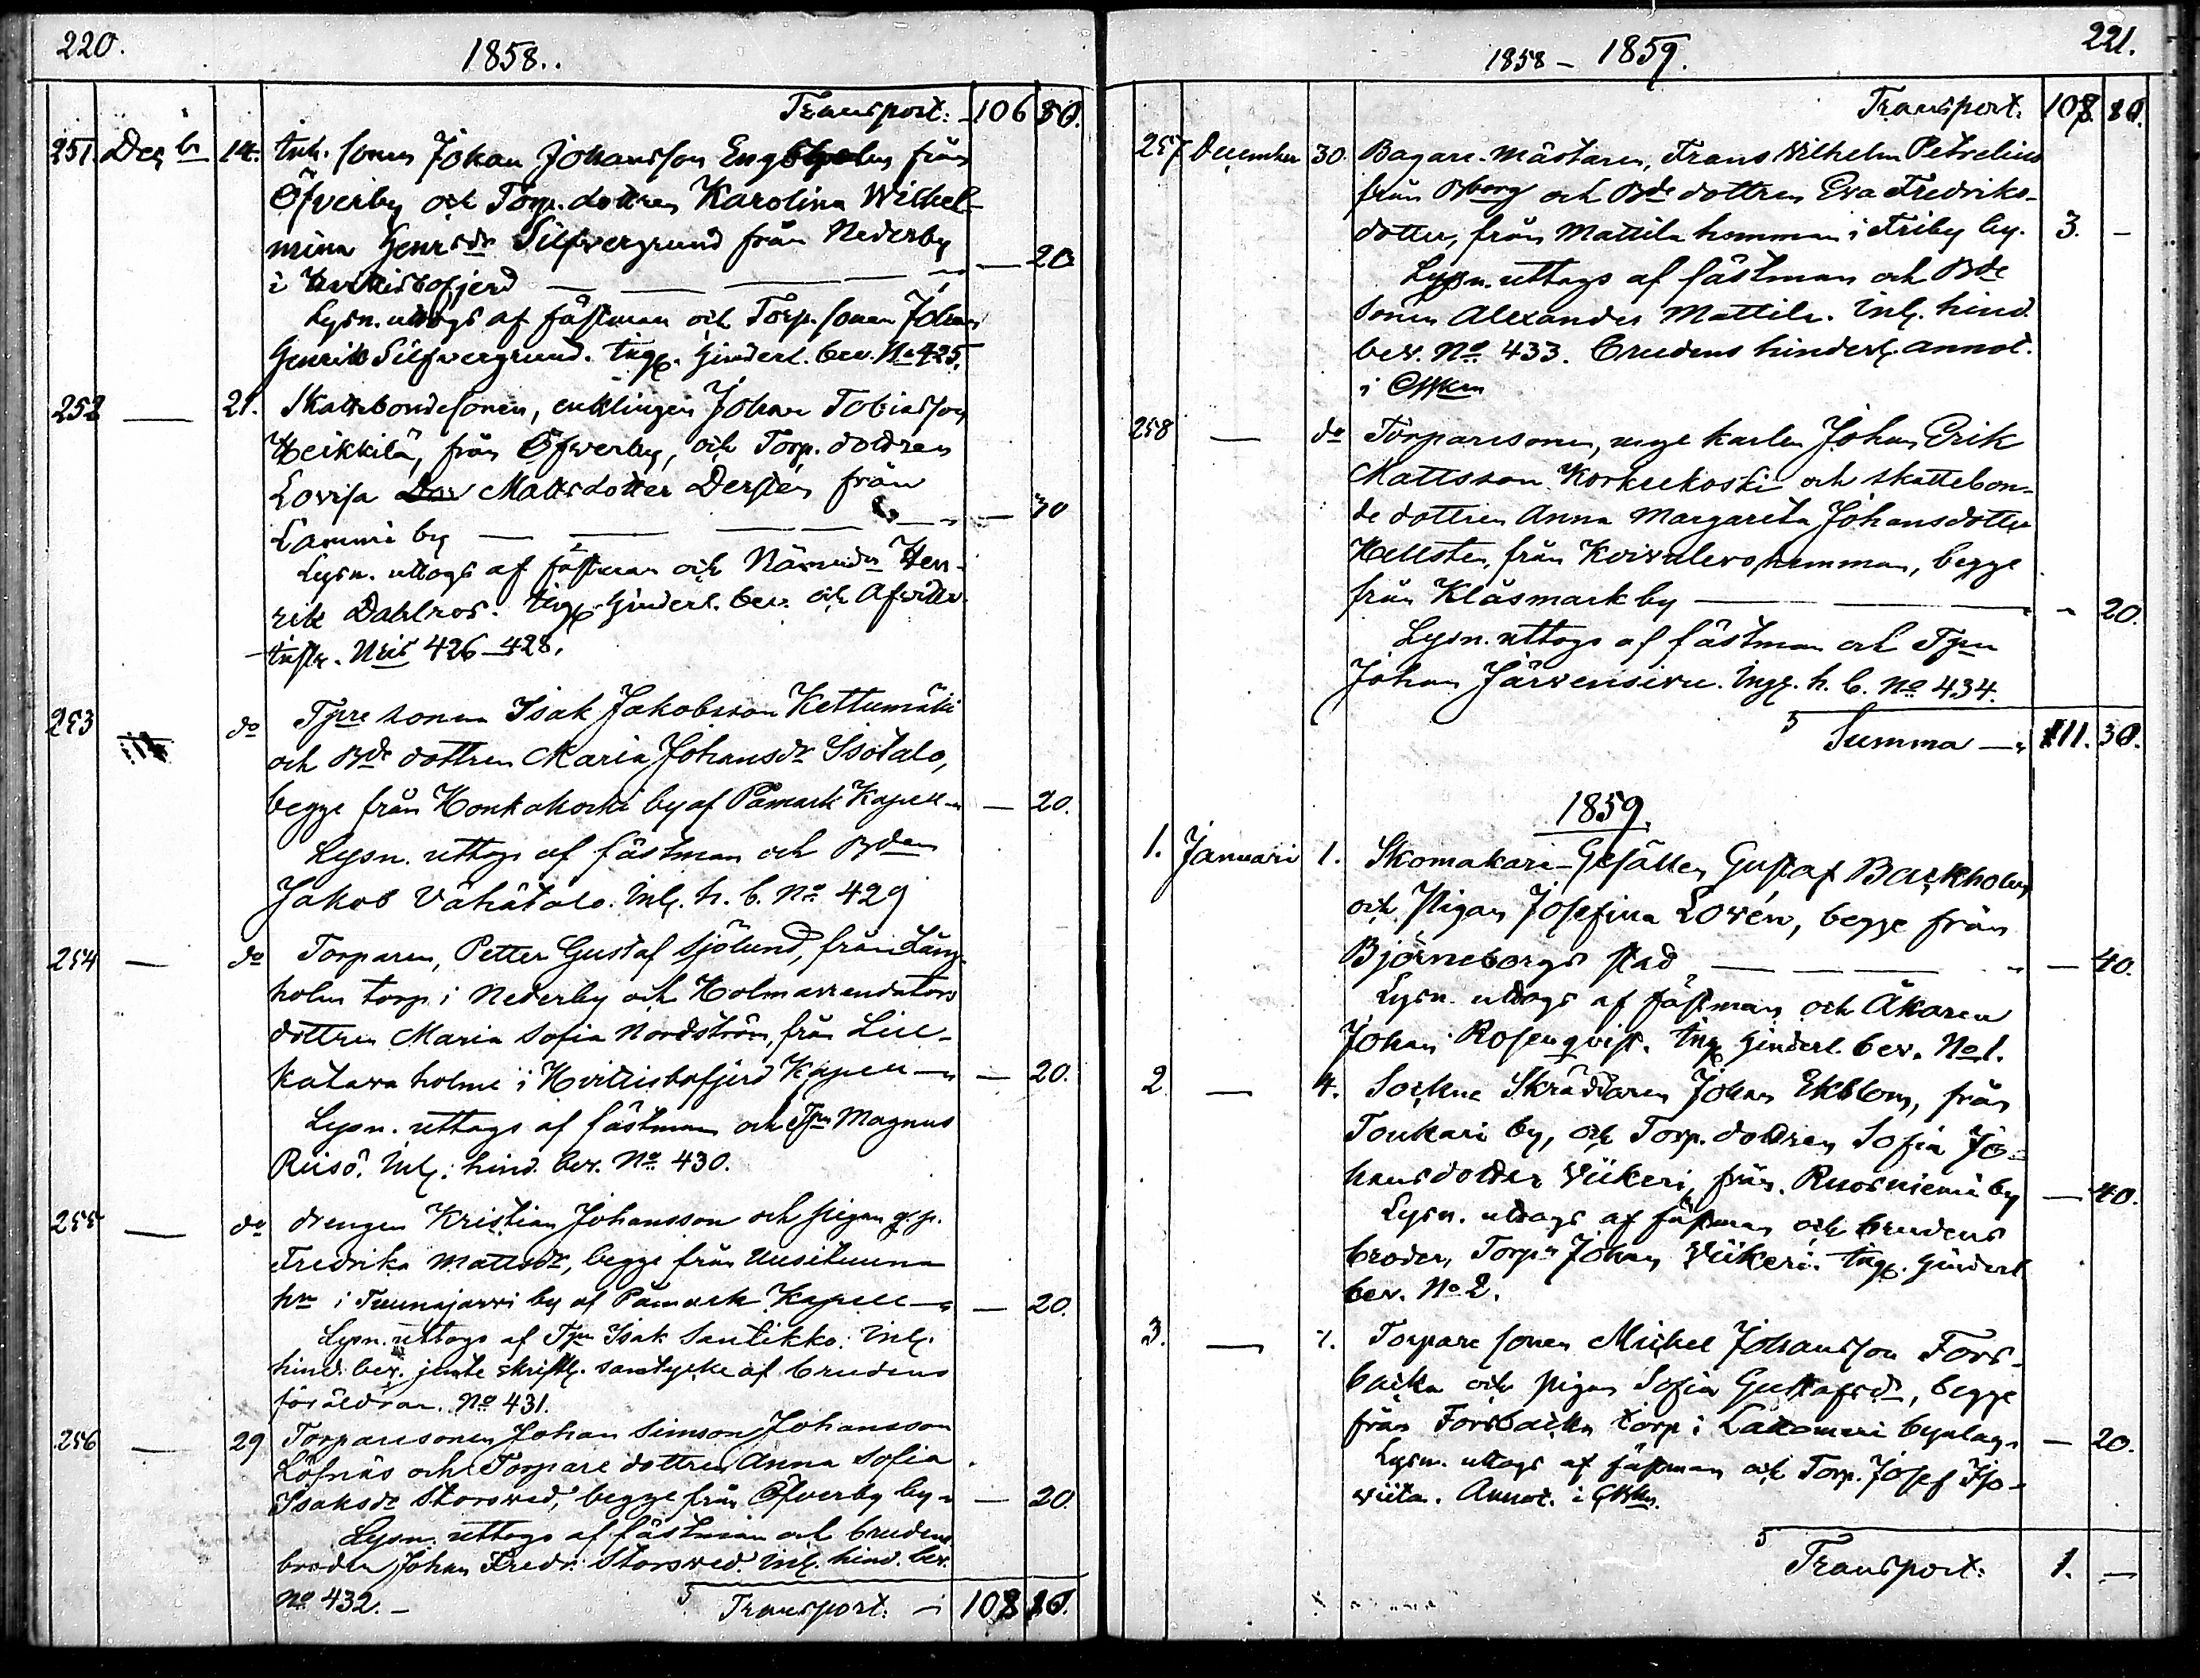 220.
1858.
Transport. 106 80.
251. Dec br 14. Inh. sonen Johan Johansson Engblom från
Öfverby och Torp. dottren Karolina Wilhel-
mina Henrsdr Silfvergrund från Nederby
i Hvittisbofjerd — — — — 20
Lysn. uttogs af fästman och Torp. sonen Johan
Henrik Silfvergrund. Ingf. hinderl. bev. No 425.
252 — 21. Skattebondesonen, enklingen Johan Tobiasson
Heikkilä, från Öfverby, och Torp. dottren
Lovisa Mattsdotter Dersten från
Lammi by — — — — 30
Lysn. uttogs af fästman och Nämndn Hen-
rik Dahlros. Ingf. hinderl. bev. och Afvittr.
instr. Nris 426-428.
253 do Tpre sonen Isak Jakobsson Kettumäki
och Bde dottren Maria Johansdr Isotalo,
begge från Honkakoski by af Påmark Kapell — 20.
Lysn. uttogs af fästman och Bden
Jakob Vähätalo. Inl. h. b. No 429
254 — do Torparen, Petter Gustaf Sjölund, från Lång-
holm torp i Nederby och Holmarrendators
dottren Maria Sofia Nordström, från Lill-
katava holme i Hvittisbofjerd Kapell — 20.
Lysn. uttogs af fästman och Tpn Magnus
Riisö. Inl. hind. bev. No 430.
255 — do drengen Kristian Johansson och pigan
Fredrika Mattsdr, begge från Uusitunna
hn i Tuunajarvi by af Påmark Kapell — 20.
Lysn. uttogs af Tpn Isak Santikko. Inl.
hind. bev. jemte skriftl. samtycke af brudens
föräldrar. No 431.
256 — 29 Torparesonen Johan Simson Johansson
Löfnäs och Torpare dottren Anna Sofia
Isaksdr Storswed, begge från Öfverby by — 20.
Lysn. uttogs af fästman och brudens
broder Johan Fredr. Storswed. Inl. hind. bev.
No 432. — Transport. 108
1858 - 1859.
221.
Transport. 108
257 December 30. Bagare-Mästaren, Frans Wilhelm Petrelius
från Bborg och Bde dottren Eva Fredriks-
dotter, från Mattila hemman i Friby by. 3. —
Lysn. uttogs af fästman och Bde
sonen Alexander Mattila. Inl. hind.
bev. No 433. Brudens hinderl. annot.
i
258 — do Torparesonen, unge karlen Johan Erik
Mattsson Korkeekoski och skattebon-
de dottren Anna Margareta Johansdotter
Hellsten, från Koivulevo hemman, begge
från Klåsmark by — — 20.
Lysn. uttogs af fästman och Tpn
Johan Järvensivu. Ingf. h. b. No 434.
Summa — 111. 30.
1859.
1. Januari 1. Skomakare-Gesällen Gustaf Backholm
och Pigan Josefina Lovén, begge från
Björneborgs stad — — — 40.
Lysn. uttogs af fästman och Åkaren
Johan Rosenqvist. Ingf. hinderl. bev. No 1.
2 — 4. Sockne Skräddaren Johan Ekblom, från
Toukari by, och Torp. dottren Sofia Jo-
hansdotter Viikeri, från Ruosniemi by — 40.
Lysn. uttogs af fästman och brudens
broder, Torpn Johan Viikeri. Ingf. hinderl.
bev. No 2.
3. — 7. Torpare sonen Michel Johansson Fors-
backa och pigan Sofia Gustafsdr, begge
från Forsbacka torp i Lattomeri bynlag — 20.
Lysn. uttogs af fästman och Torp. Josef Iso-
viita. Annot. i
Transport. 1. —